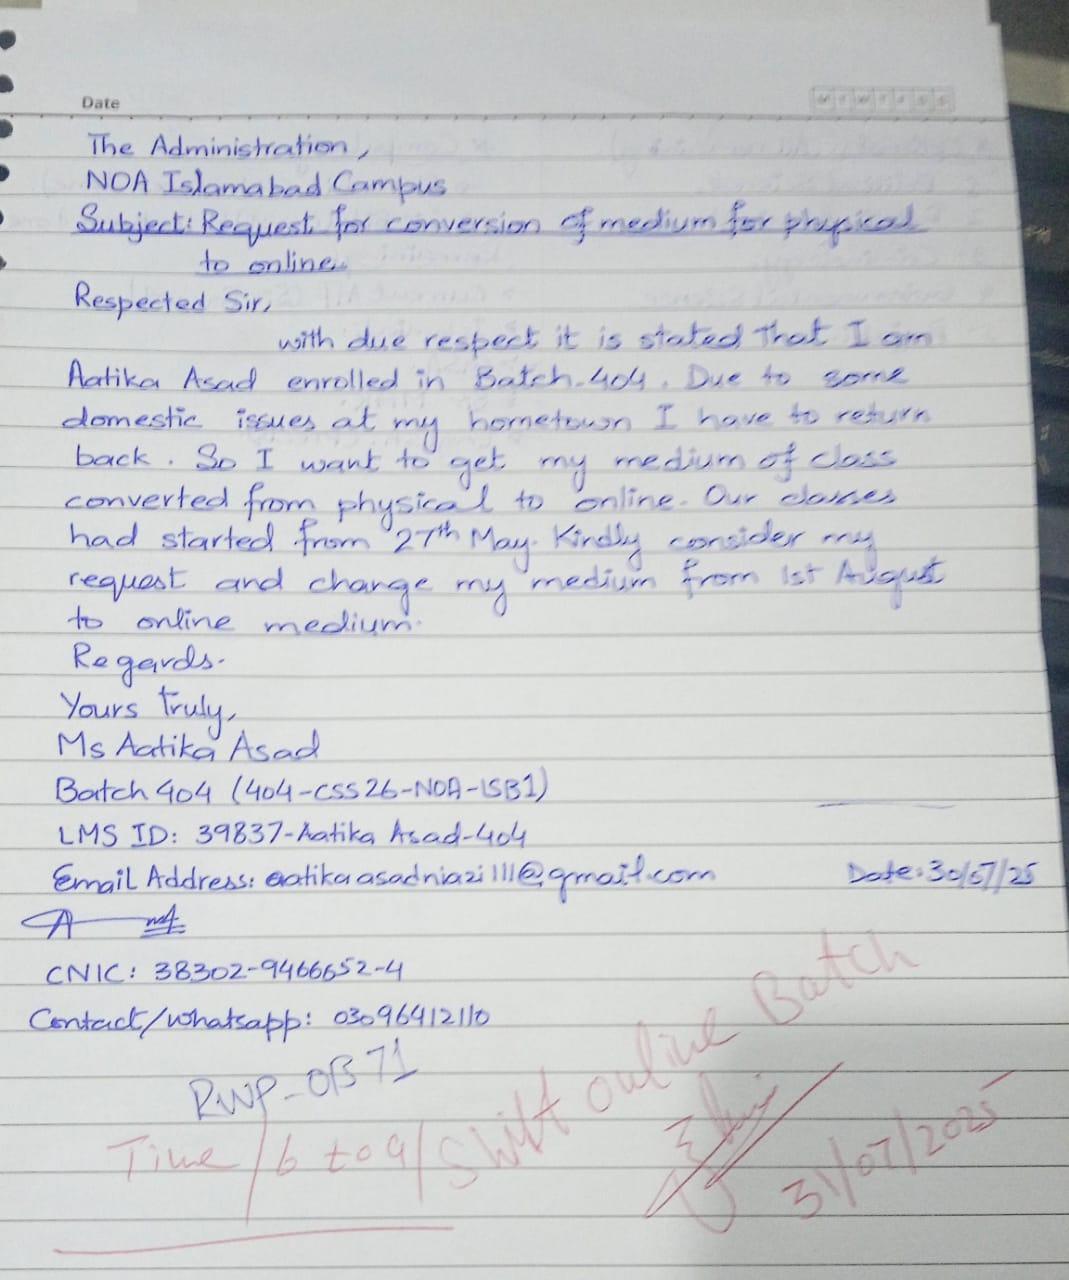 Date
The Administration,
NOA Islamabad Campus
Subject: Request for conversion of medium for physical
to online.
Respected Sir,
with due respect it is stated that I am
Aatika Asad enrolled in Batch-404. Due to some
domestic issues at my hometown I have to return
back. So I want to get my medium of class
converted from physical to online. Our classes
had started from 27th May. Kindly consider my
request and change my medium from 1st August
to online medium.
Regards.
Yours truly,
Ms Aatika Asad
Batch 404 (404-CSS26-NOA-ISB1)
LMS ID: 39837-Aatika Asad-404
Email Address: aatikaasadniazi111@gmail.com
Date: 30/07/25
CNIC: 38302-9466652-4
Contact/whatsapp: 03096412110
RWP-OB71
Time/6 to 9/Swift online Batch
31/07/2025